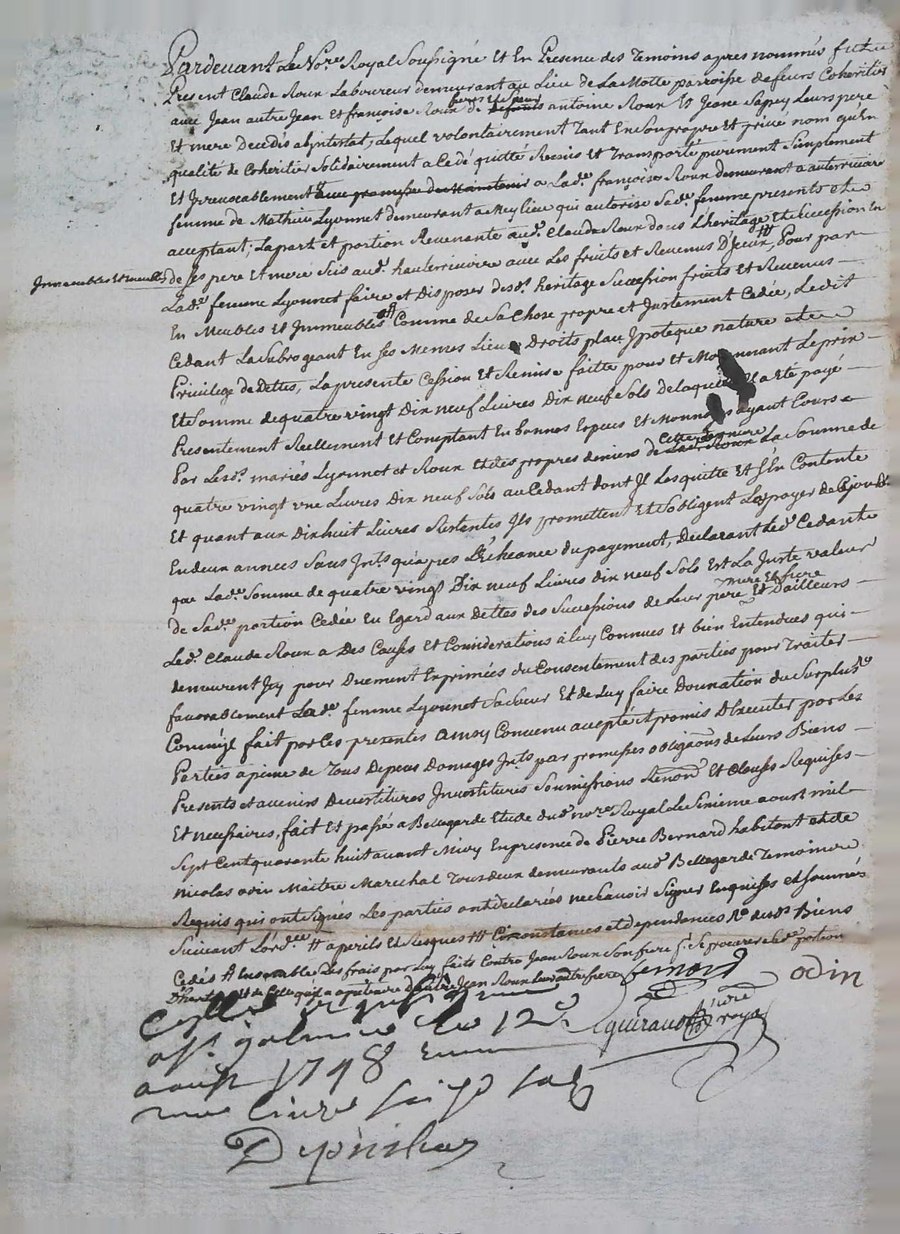 Pardevant Le No.re Royal Soussigné Et En Presence des Temoins apres nommés fut
Present Claude Roux Laboureur demeurant au Lieu de La Motte parroisse de feurs Coheritier
avec Jean autre Jean et françoise Roux de deffunts antoine Roux Et Jeane Sapey Leurs pere
Et mere decedés abjntestat, Lequel volontairement Tant En Son propre Et privé nom qu'En
qualité de Coheritier Solidairement a Cedé quitté Remis Et Transporté purement Simplement
Et Jrrevocablement avec promesse de Maintenir a Lad.e françoise Roux demeurant a auterivoire
femme de Mathieu Lyonnet demeurant a Meylieu qui autorise Sad.e femme presente et
acceptant, La part et portion Revenante aud. Claude Roux dans L'heritage Et Succession
Jmmeubles Et meubles
de Ses pere Et mere Sis aud. hauterivoire avec Les fruits et Revenus D'Jceux, Pour par
Lad.e femme Lyonnet faire et Disposer desd. heritage Succession fruits et Revenus
En Meubles Et Jmmeubles Comme de Sa Chose propre et Justement Cedée, Ledit
Cedant La Subrogeant En Ses Memes Lieu Droits place Jpoteque nature et
Privilege de Dettes, La presente Cession Et Remise faitte pour et Moyennant Le prix
Et Somme de quatre vingt Dix neuf Livres Dix neuf Sols de laquelle Jl a Ete payé
Presentement Reellement Et Comptant En bonnes Especes Et Monnoyes ayant Cours
Par Lesd. mariés Lyonnet et Roux Et des propres deniers de cette derniere La Somme de
quatre vingt vne Livres Dix neuf Sols au Cedant dont Jl Les quitte Et S'En Contente
Et quant aux Dixhuit Livres Restantes Jls promettent Et S'obligent Les payer de Cejourd.
En deux années Sans Jnts. qu'apres L'Echeance du payement, Declarant Led. Cedant
que Lad.e Somme de quatre vingt Dix neuf Livres dix neuf Sols Est La Juste valeur
de Sad.e portion Cedée Eu Egard aux Dettes des Successions de Leur pere mere Et frere Et Dailleurs
Led. Claude Roux a Des Causes Et Considerations à Luy Connues Et bien Entendues qui
demeurent Jcy pour Duement Exprimées du Consentement des parties pour Traiter
favorablement Lad.e femme Lyonnet Sa Soeur Et de Luy faire Donnation du Surplus
Comme Jl fait par Ces presentes Ainsy Convenu accepté Et promis D'Executer par Les
Parties a peine de Tous Depens Domages Jnts. par promesses obligaons de Leurs Biens
Presents et avenirs Devestitures Jnvestitures Soumissions Renonc. Et Clauses Requises
Et necessaires, fait Et passé a Bellegarde Etude dud. no.re Royal Le Sixieme aoust mil
Sept Cent quarante huit avant Midy En presence de Pierre Bernard habitant et de
Nicolas odin Maitre Marechal Tous deux demeurants aud. Bellegarde Temoins
Requis qui ont Signés Les parties ont declarées ne Sçavoir Signer Enquises et Sommés
Suivant L'ord.ce # a perils Et Risques ## Circonstances et dependances desd. Biens
Cedés # Ensemble Des frais par Luy faits Contre Jean Roux Son frere Se procurer portion
Jean Roux Leur autre frere
Bernard odin
Guiraud No.re royal
a St. galmier le 12
aoust 1748
une livre Sols